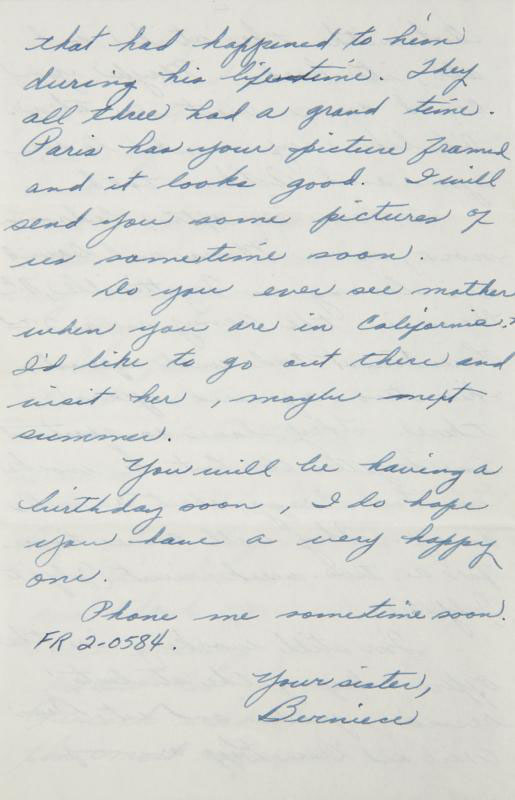 that had happened to him
during his lifetime. They
all three had a grand time.
Paris has your picture framed
and it looks good. I will
send you some pictures of
us sometime soon.
Do you ever see mother
when you are in California?
I'd like to go out there and
visit her, maybe next
summer.
You will be having a
birthday soon, I do hope
you have a very happy
one.
Phone me sometime soon.
FR 2-0584.
Your sister,
Berniece